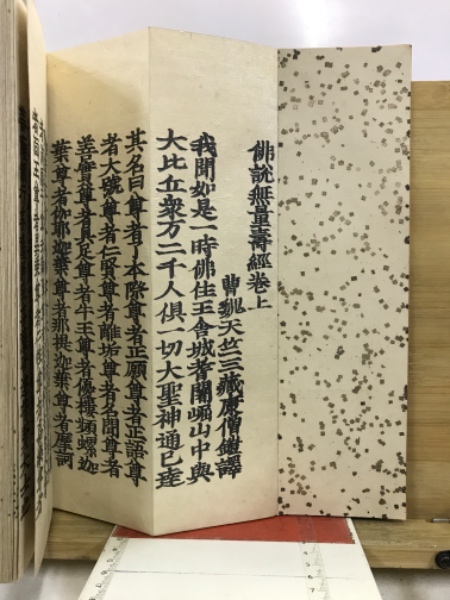 佛說無量壽經卷上
曹魏天竺三藏康僧鎧譯
我聞如是一時佛住王舍城耆闍崛山中與
大比丘衆万二千人俱一切大聖神通已達
其名曰尊者了本際尊者正願尊者正語尊
者大號尊者仁賢尊者離垢尊者名聞尊者
善實尊者具足尊者牛王尊者優樓頻螺迦
葉尊者伽耶迦葉尊者那提迦葉尊者摩訶